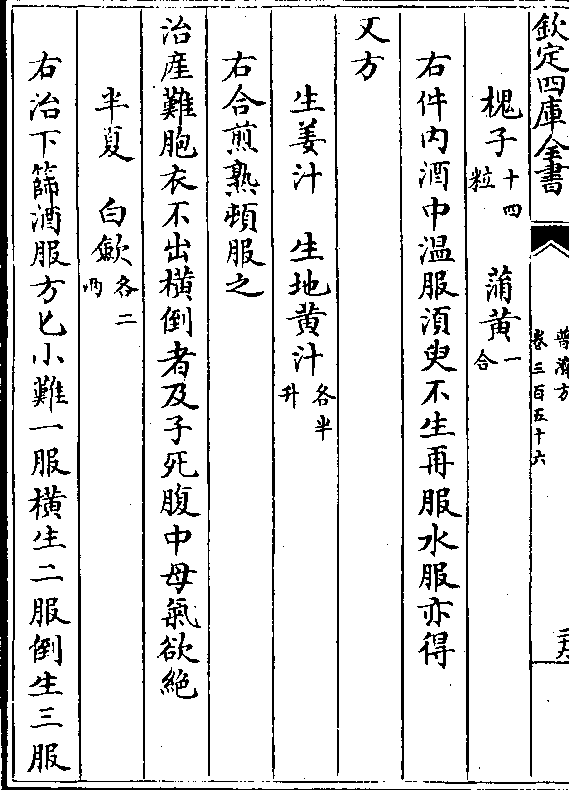 欽定四庫全書
普濟方
卷三百五十六
槐子十四粒 蒲黄一合
右件内酒中温服湏臾不生再服水服亦得
又方
生姜汁 生地黄汁各半升
右合煎熟頓服之
治産難胞衣不出横倒者及子死腹中母氣欲絶
半夏 白歛各二两
右治下篩酒服方匕小難一服横生二服倒生三服